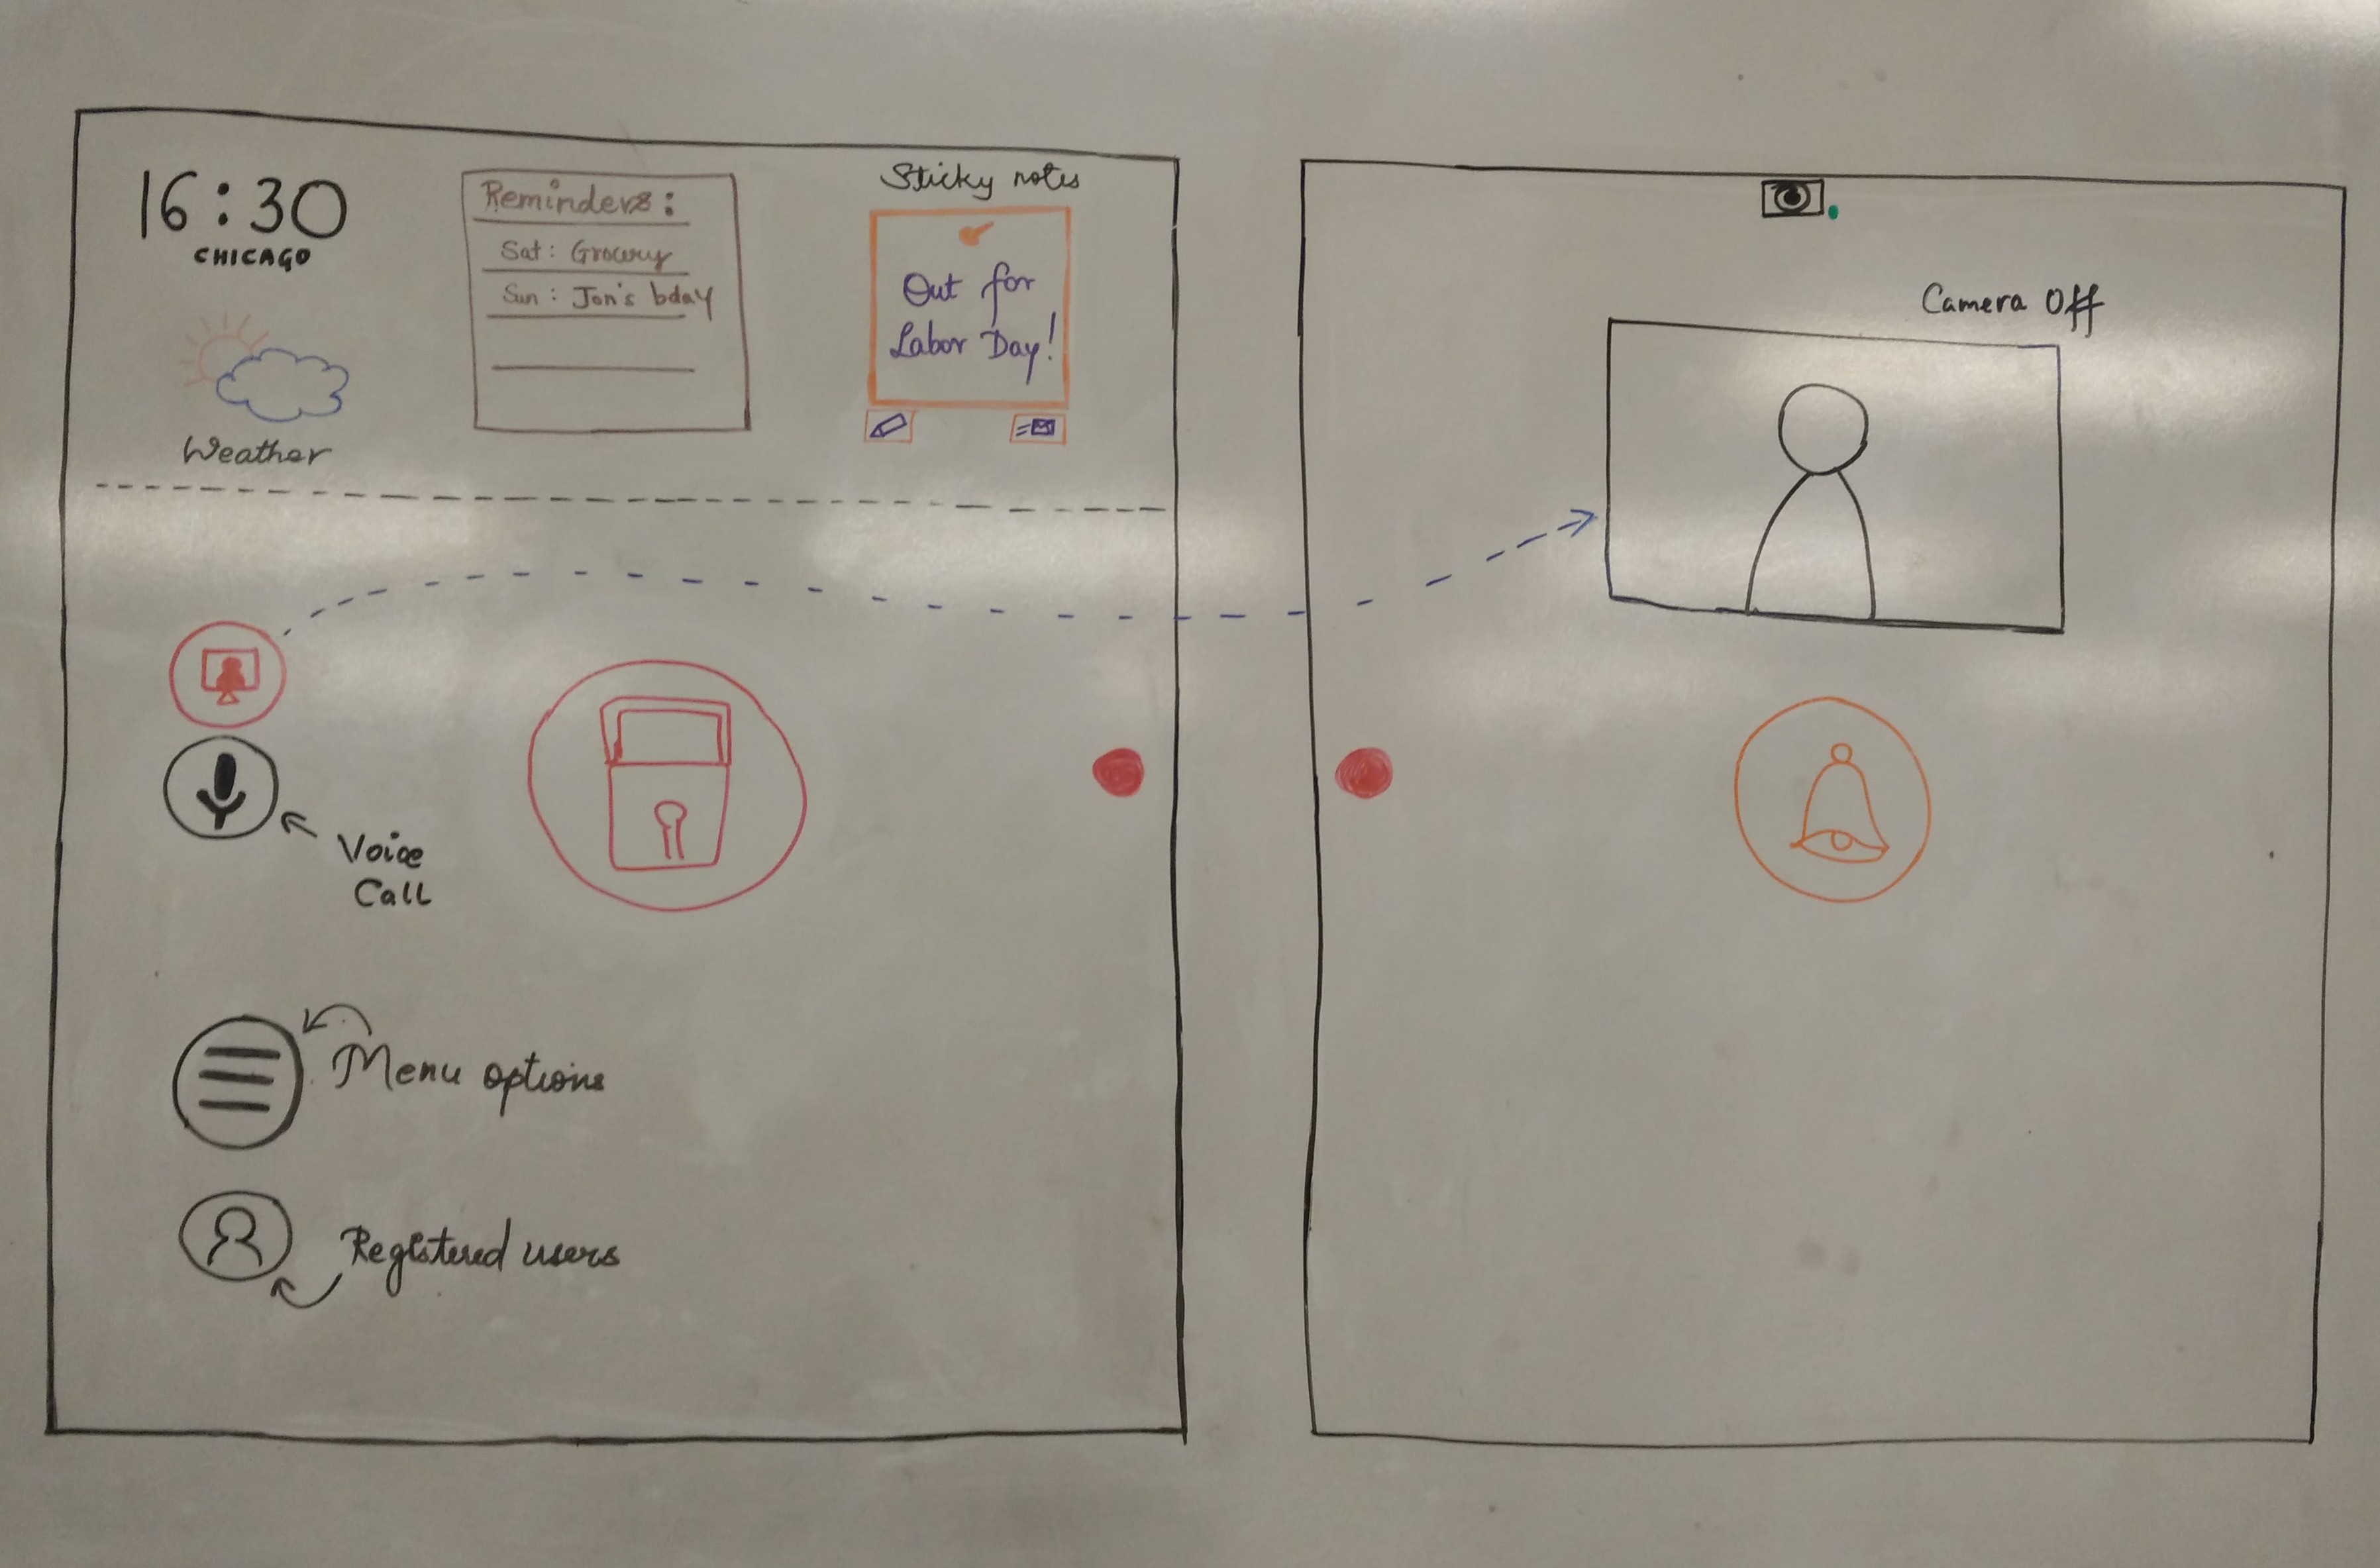 16:30
CHICAGO
Weather
Reminders:
Sat: Grocery
Sun: Jon's bday
Sticky notes
Out for
Labor Day!
Voice
Call
Menu options
Registered users
Camera Off